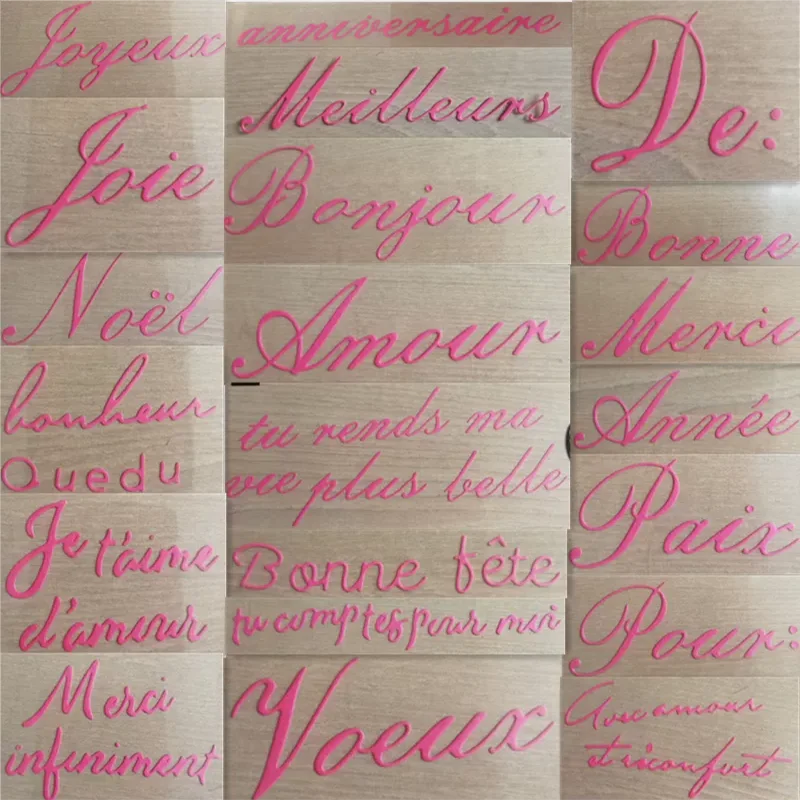 Joyeux
Joie
Noël
bonheur
Quedu
Je t'aime
d'amour
Merci
infiniment
anniversaire
Meilleurs
Bonjour
Amour
tu rends ma
vie plus belle
Bonne fête
tu comptes pour moi
Voeux
De:
Bonne
Merci
Année
Paix
Pour:
Avec amour
et réconfort